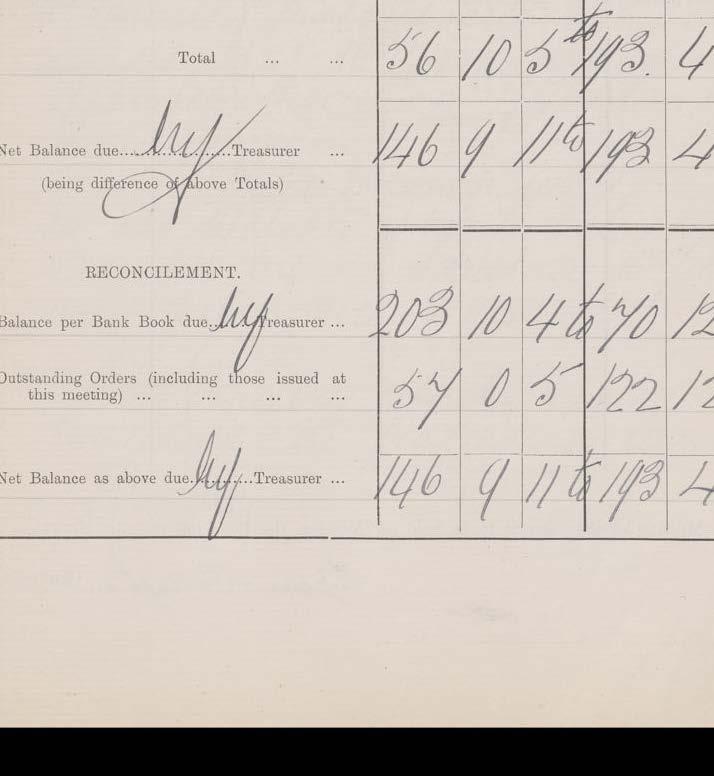 Total ... ... 56 10 5 to 193. 4
Net Balance due by Treasurer ... 146 9 11 to 193 4
(being difference of above Totals)
RECONCILEMENT.
Balance per Bank Book due by Treasurer ... 203 10 4 to 70 12
Outstanding Orders (including those issued at
this meeting) ... ... ... ... 57 0 5 122 12
Net Balance as above due by Treasurer ... 146 9 11 to 193 4